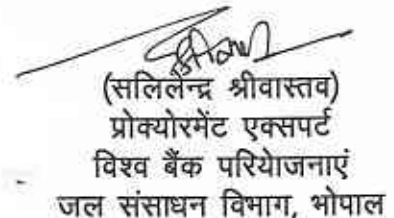 (सलिलेन्द्र श्रीवास्तव)
प्रोक्योरमेंट एक्सपर्ट
विश्व बैंक परियेाजनाएं
जल संसाधन विभाग, भोपाल